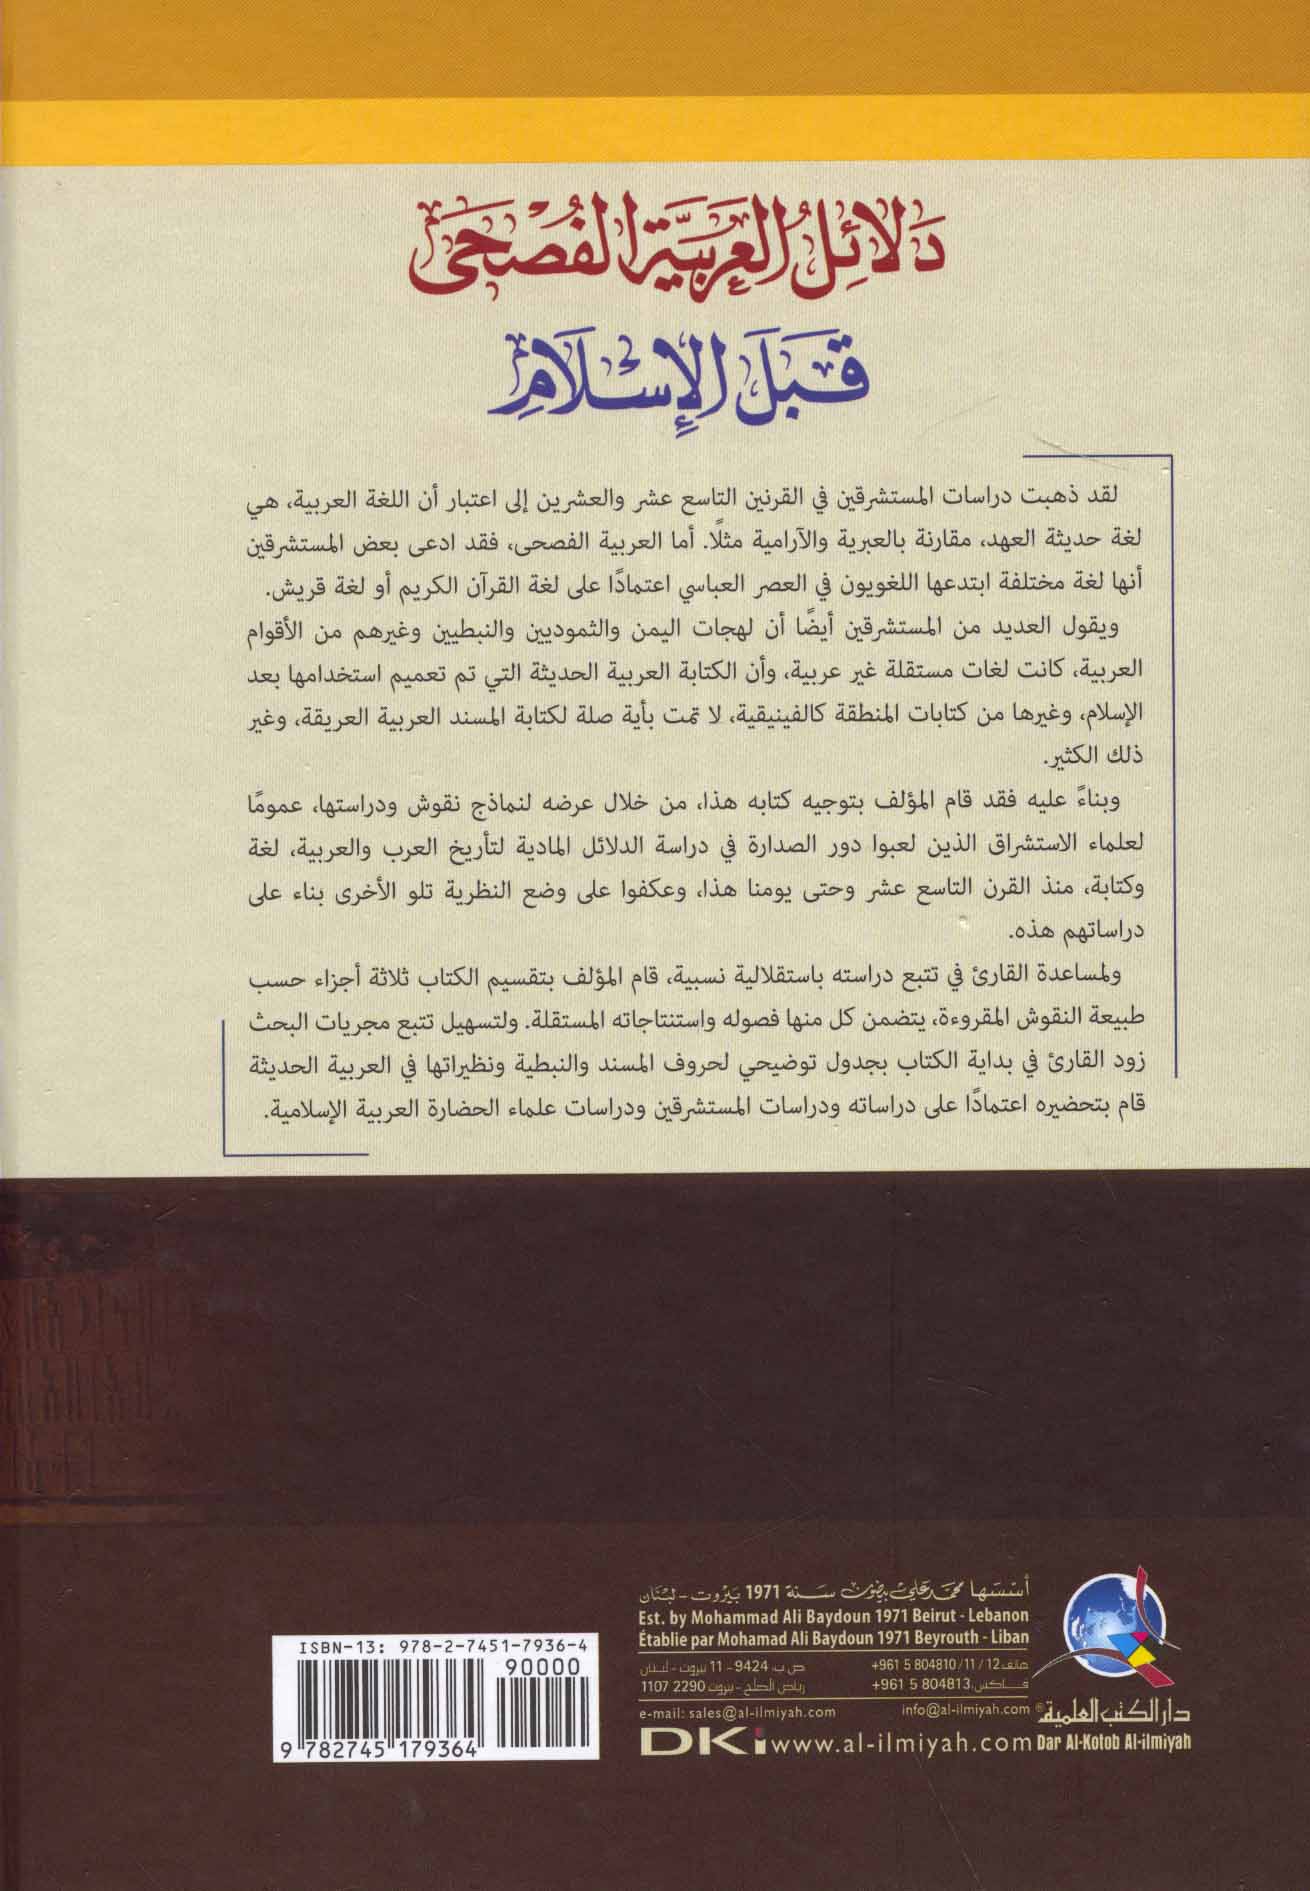 دَلَائِلُ العَرَبِيَّةِ الفُصْحَى
قَبَلَ الإِسْلَامِ
لقد ذهبت دراسات المستشرقين في القرنين التاسع عشر والعشرين إلى اعتبار أن اللغة العربية، هي
لغة حديثة العهد، مقارنة بالعبرية والآرامية مثلًا. أما العربية الفصحى، فقد ادعى بعض المستشرقين
أنها لغة مختلفة ابتدعها اللغويون في العصر العباسي اعتمادًا على لغة القرآن الكريم أو لغة قريش.
ويقول العديد من المستشرقين أيضًا أن لهجات اليمن والثموديين والنبطيين وغيرهم من الأقوام
العربية، كانت لغات مستقلة غير عربية، وأن الكتابة العربية الحديثة التي تم تعميم استخدامها بعد
الإسلام، وغيرها من كتابات المنطقة كالفينيقية، لا تمت بأية صلة لكتابة المسند العربية العريقة، وغير
ذلك الكثير.
وبناءً عليه فقد قام المؤلف بتوجيه كتابه هذا، من خلال عرضه لنماذج نقوش ودراستها، عمومًا
لعلماء الاستشراق الذين لعبوا دور الصدارة في دراسة الدلائل المادية لتأريخ العرب والعربية، لغة
وكتابة، منذ القرن التاسع عشر وحتى يومنا هذا، وعكفوا على وضع النظرية تلو الأخرى بناء على
دراساتهم هذه.
ولمساعدة القارئ في تتبع دراسته باستقلالية نسبية، قام المؤلف بتقسيم الكتاب ثلاثة أجزاء حسب
طبيعة النقوش المقروءة، يتضمن كل منها فصوله واستنتاجاته المستقلة. ولتسهيل تتبع مجريات البحث
زود القارئ في بداية الكتاب بجدول توضيحي لحروف المسند والنبطية ونظيراتها في العربية الحديثة
قام بتحضيره اعتمادًا على دراساته ودراسات المستشرقين ودراسات علماء الحضارة العربية الإسلامية.
أسسها محمد علي بيضون سنة 1971 بيروت - لبنان
Est. by Mohammad Ali Baydoun 1971 Beirut - Lebanon
Établie par Mohamad Ali Baydoun 1971 Beyrouth - Liban
هاتف: +961 5 804810/11/12
فاكس: +961 5 804813
ص.ب: 9424 - 11 بيروت - لبنان
رياض الصلح - بيروت 2290 1107
e-mail: sales@al-ilmiyah.com info@al-ilmiyah.com
DKi www.al-ilmiyah.com
دار الكتب العلمية®
Dar Al-Kotob Al-ilmiyah
ISBN-13: 978-2-7451-7936-4
90000
9 782745 179364